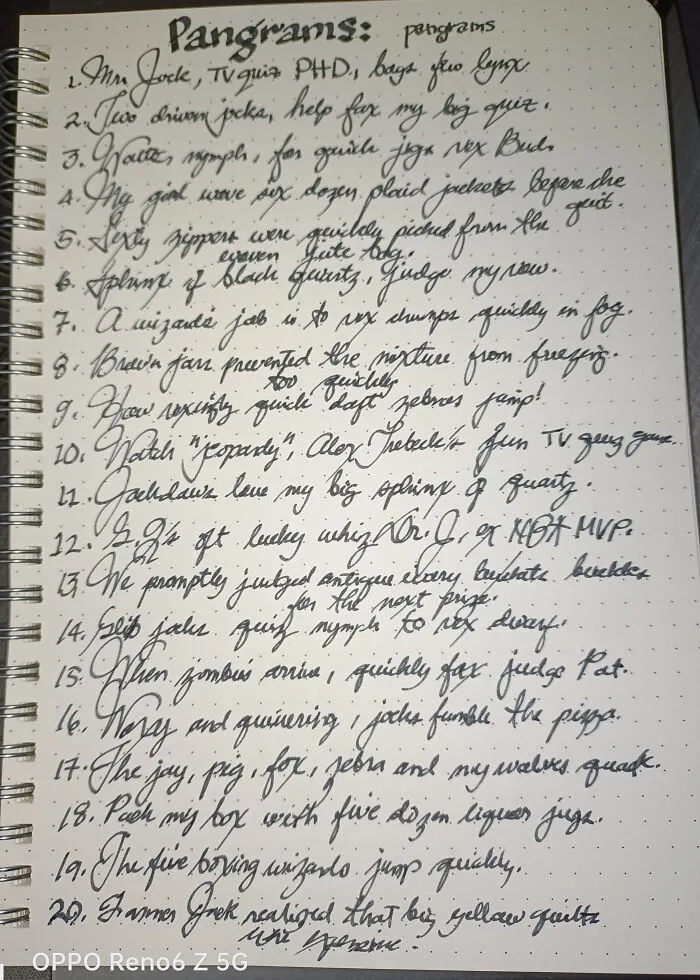 Pangrams: pangrams
1. Mr. Jock, TV quiz PHD, bags few lynx.
2. Two driven jocks, help fax my big quiz.
3. Waltz, nymph, for quick jigs vex Bud.
4. My girl wove six dozen plaid jackets before she
quit.
5. Sixty zippers were quickly picked from the
woven jute bag.
6. Sphinx of black quartz, judge my vow.
7. A wizard's job is to vex chumps quickly in fog.
8. Brawn jars prevented the mixture from freezing.
too quickly
9. How vexingly quick daft zebras jump!
10. Watch "jeopardy", Alex Trebeck's fun TV quiz game.
11. Jackdaws love my big sphinx of quartz.
12. J.Q.'s oft lucky whiz Dr. J, ex NBA MVP.
13. We promptly judged antique ivory buckles
for the next prize.
14. Glib jocks quiz nymph to vex dwarf.
15. When zombies arrive, quickly fax judge Pat.
16. Woxy and quivering, jocks fumble the pizza.
17. The jay, pig, fox, zebra and my wolves quack.
18. Pack my box with five dozen liquor jugs.
19. The five boxing wizards jump quickly.
20. Farmer Jack realized that big yellow quilts
were expensive.
OPPO Reno6 Z 5G